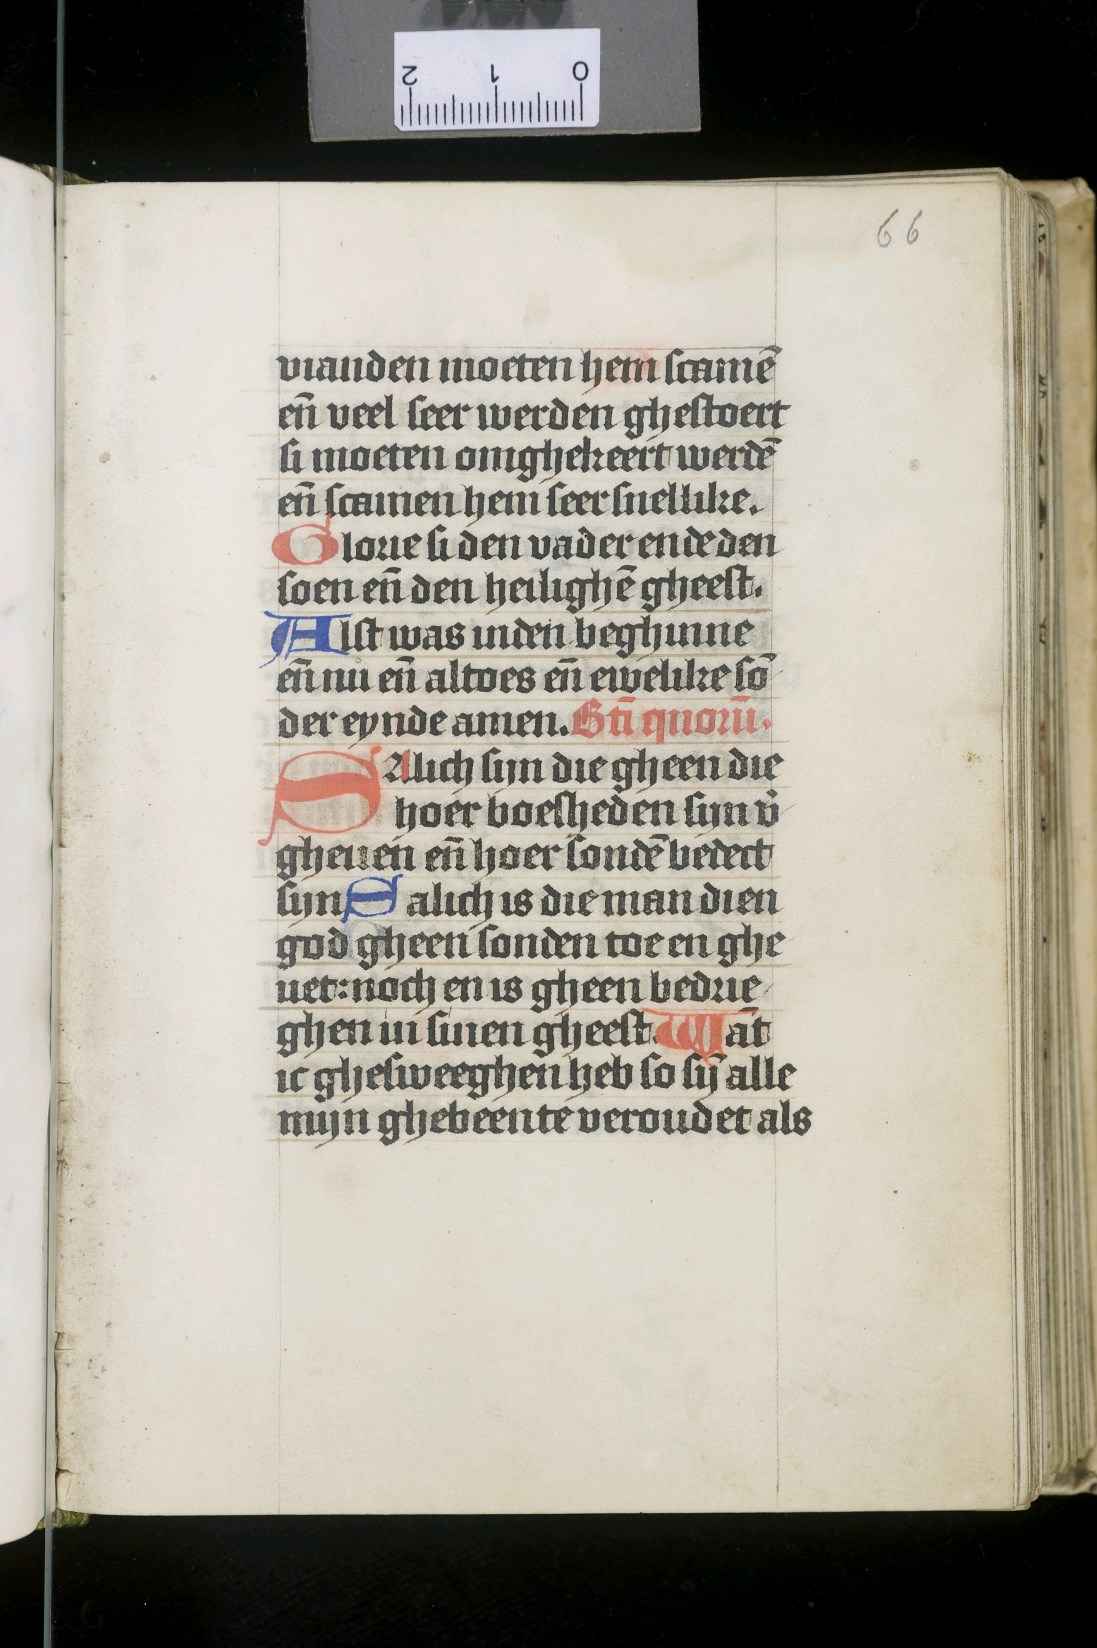 2 1 0
66
vianden moeten hem scamē
en̄ veel seer werden ghestoert
si moeten omghekeert werdē
en̄ scamen hem seer snellike.
Glorie si den vader ende den
soen en̄ den heilighē gheest.
Alst was inden beghinne
en̄ nu en̄ altoes en̄ ewelike sō
der eynde amen. Bt̄i quorū.
Salich sijn die gheen die
hoer boesheden sijn v̄
gheuen en̄ hoer sondē bedect
sijn Salich is die man dien
god gheen sonden toe en ghe
uet: noch en is gheen bedrie
ghen in sinen gheest. Wāt
ic ghesweeghen heb so sij̄ alle
mijn ghebeente veroudet als